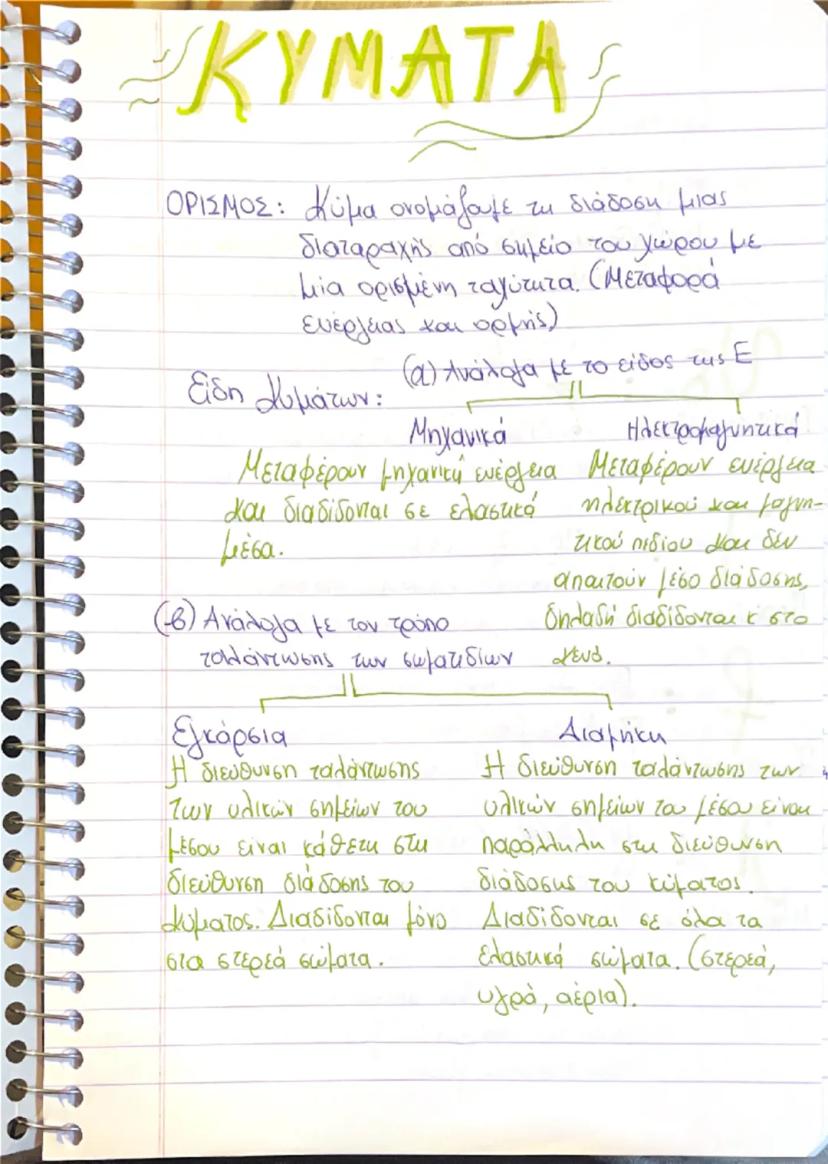 ΚΥΜΑΤΑ
ΟΡΙΣΜΟΣ: Κύμα ονομάζουμε τη διάδοση μιας
διαταραχής από σημείο του χώρου με
μια ορισμένη ταχύτητα. (Μεταφορά
ενέργειας και ορμής)
(α) Ανάλογα με το είδος της Ε
Είδη Κυμάτων:
Μηχανικά
Μεταφέρουν μηχανική ενέργεια
και διαδίδονται σε ελαστικά
μέσα.
Ηλεκτρομαγνητικά
Μεταφέρουν ενέργεια
ηλεκτρικού και μαγνη-
τικού πεδίου και δεν
απαιτούν μέσο διάδοσης,
δηλαδή διαδίδονται κ στο
κενό.
(β) Ανάλογα με τον τρόπο
ταλάντωσης των σωματιδίων
Εγκάρσια
Η διεύθυνση ταλάντωσης
των υλικών σημείων του
μέσου είναι κάθετη στη
διεύθυνση διάδοσης του
κύματος. Διαδίδονται μόνο
στα στερεά σώματα.
Διαμήκη
Η διεύθυνση ταλάντωσης των
υλικών σημείων του μέσου είναι
παράλληλη στη διεύθυνση
διάδοσης του κύματος.
Διαδίδονται σε όλα τα
ελαστικά σώματα. (στερεά,
υγρά, αέρια).